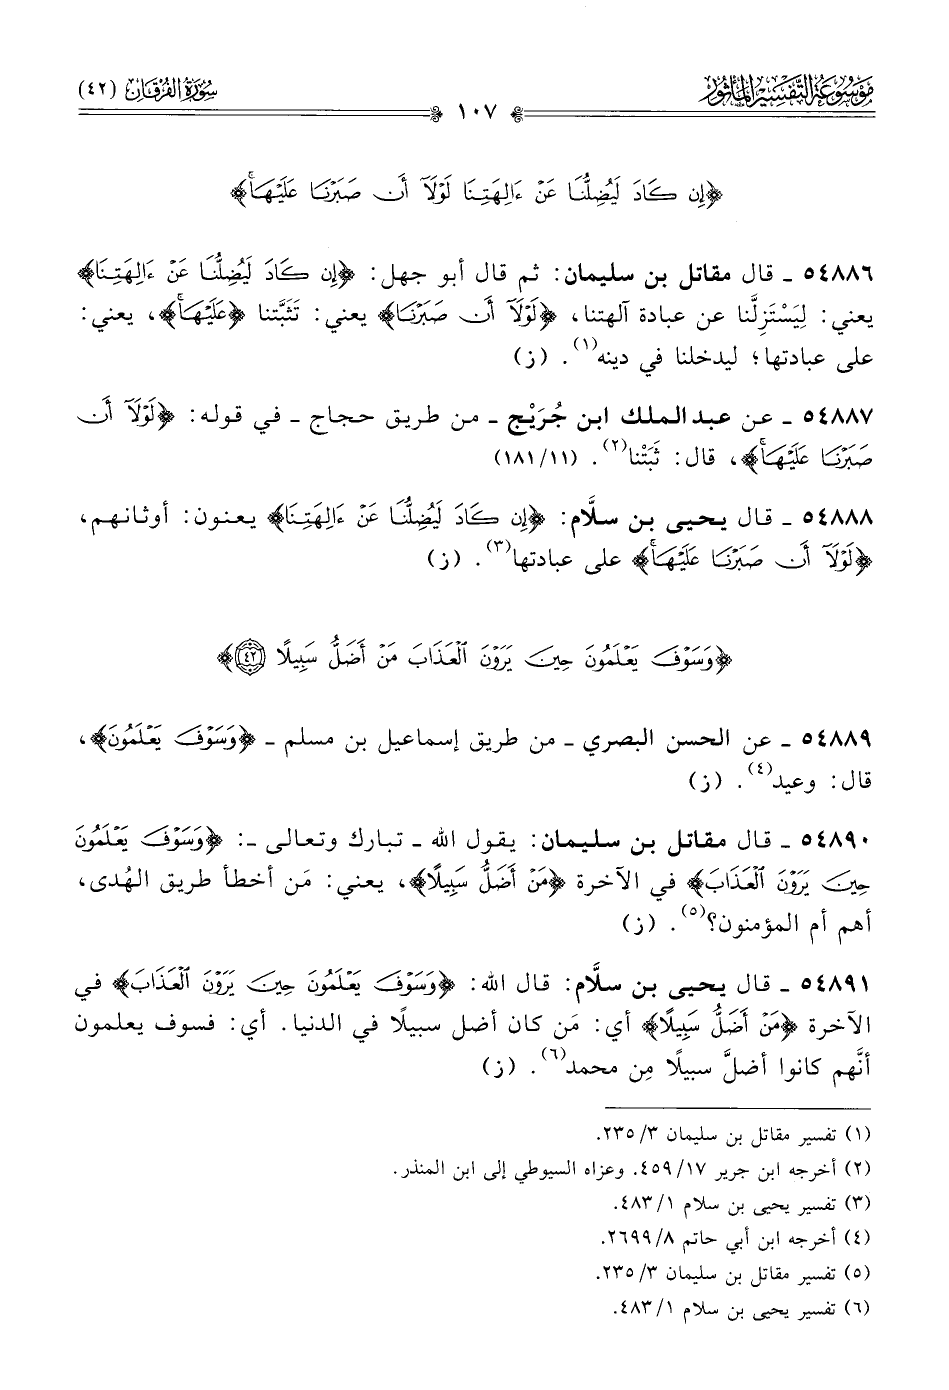 مَوْسُوعَةُ التَّفْسِيرِ المَأْثُور
سُورَةُ الفُرْقَان (٤٢)
١٠٧
﴿إِن كَادَ لَيُضِلُّنَا عَنْ ءَالِهَتِنَا لَوْلَآ أَن صَبَرْنَا عَلَيْهَاۚ﴾
٥٤٨٨٦ ـ قال مقاتل بن سليمان: ثم قال أبو جهل: ﴿إِن كَادَ لَيُضِلُّنَا عَنْ ءَالِهَتِنَا﴾
يعني: لِيَسْتَزِلَّنا عن عبادة آلهتنا، ﴿لَوْلَآ أَن صَبَرْنَا﴾ يعني: تَثَبَّتنا ﴿عَلَيْهَاۚ﴾، يعني:
على عبادتها؛ ليدخلنا في دينه(١). (ز)
٥٤٨٨٧ ـ عن عبد الملك ابن جُرَيْج ـ من طريق حجاج ـ في قوله: ﴿لَوْلَآ أَن
صَبَرْنَا عَلَيْهَاۚ﴾، قال: ثَبَتْنا(٢). (١١/١٨١)
٥٤٨٨٨ ـ قال يحيى بن سلَّام: ﴿إِن كَادَ لَيُضِلُّنَا عَنْ ءَالِهَتِنَا﴾ يعنون: أوثانهم،
﴿لَوْلَآ أَن صَبَرْنَا عَلَيْهَاۚ﴾ على عبادتها(٣). (ز)
﴿وَسَوْفَ يَعْلَمُونَ حِينَ يَرَوْنَ ٱلْعَذَابَ مَنْ أَضَلُّ سَبِيلًا ٤٢﴾
٥٤٨٨٩ ـ عن الحسن البصري ـ من طريق إسماعيل بن مسلم ـ ﴿وَسَوْفَ يَعْلَمُونَ﴾،
قال: وعيد(٤). (ز)
٥٤٨٩٠ ـ قال مقاتل بن سليمان: يقول الله ـ تبارك وتعالى ـ: ﴿وَسَوْفَ يَعْلَمُونَ
حِينَ يَرَوْنَ ٱلْعَذَابَ﴾ في الآخرة ﴿مَنْ أَضَلُّ سَبِيلًا﴾، يعني: مَن أخطأ طريق الهُدى،
أهم أم المؤمنون؟(٥). (ز)
٥٤٨٩١ ـ قال يحيى بن سلَّام: قال الله: ﴿وَسَوْفَ يَعْلَمُونَ حِينَ يَرَوْنَ ٱلْعَذَابَ﴾ في
الآخرة ﴿مَنْ أَضَلُّ سَبِيلًا﴾ أي: مَن كان أضل سبيلًا في الدنيا. أي: فسوف يعلمون
أنَّهم كانوا أضلَّ سبيلًا مِن محمد(٦). (ز)
(١) تفسير مقاتل بن سليمان ٣/ ٢٣٥.
(٢) أخرجه ابن جرير ١٧/ ٤٥٩. وعزاه السيوطي إلى ابن المنذر.
(٣) تفسير يحيى بن سلام ١/ ٤٨٣.
(٤) أخرجه ابن أبي حاتم ٨/ ٢٦٩٩.
(٥) تفسير مقاتل بن سليمان ٣/ ٢٣٥.
(٦) تفسير يحيى بن سلام ١/ ٤٨٣.